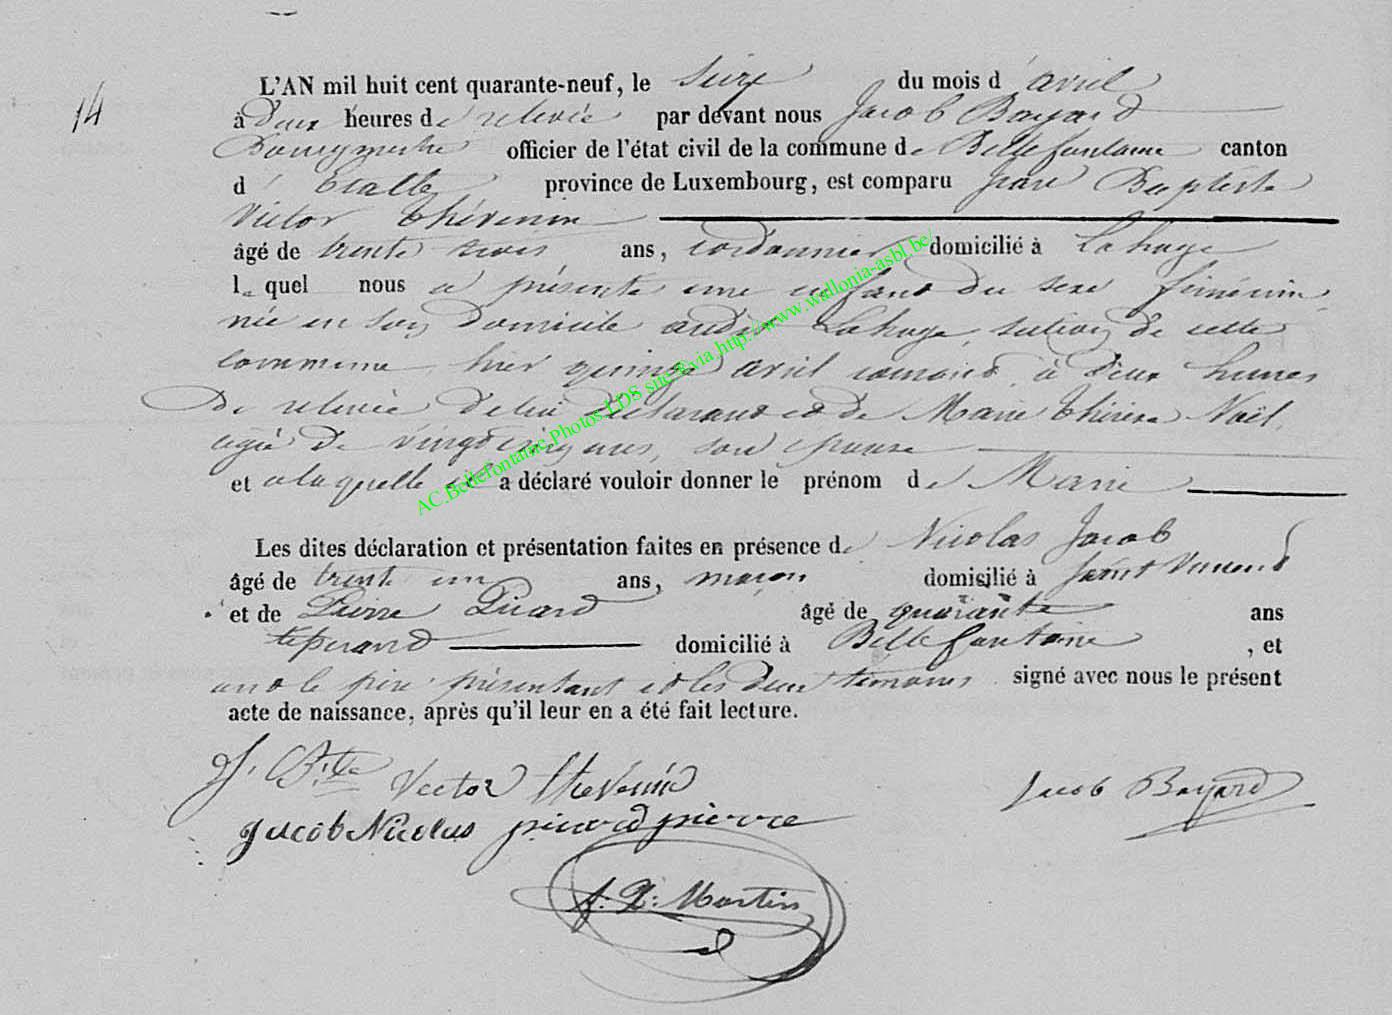 14
L'AN mil huit cent quarante-neuf, le seize du mois d'avril
à deux heures de relevée par devant nous Jacob Bayard
Bourgmestre officier de l'état civil de la commune de Bellefontaine canton
d'Etalle, province de Luxembourg, est comparu Jean Baptiste
Victor Thévenin
âgé de trente trois ans, cordonnier domicilié à Lahage
lequel nous a présenté une enfant du sexe féminin
née en son domicile audit Lahage, section de cette
commune hier quinze avril courant, à deux heures
de relevée de lui déclarant et de Marie Thérèse Noël,
agée de vingt cinq ans, son épouse
et a laquelle il a déclaré vouloir donner le prénom de Marie
Les dites déclaration et présentation faites en présence de Nicolas Jacob
âgé de trente un ans, maçon domicilié à Saint Vincent
et de Pierre Picard âgé de quarante ans
tisserand domicilié à Bellefontaine, et
ont le père présentant et les deux témoins signé avec nous le présent
acte de naissance, après qu'il leur en a été fait lecture.
J. Bte Victor Thevenin Jacob Bayard
Jacob Nicolas picard pierre
Martin
AC.Bellefontaine.Photos LDS sur via http://www.wallonia-asbl.be/